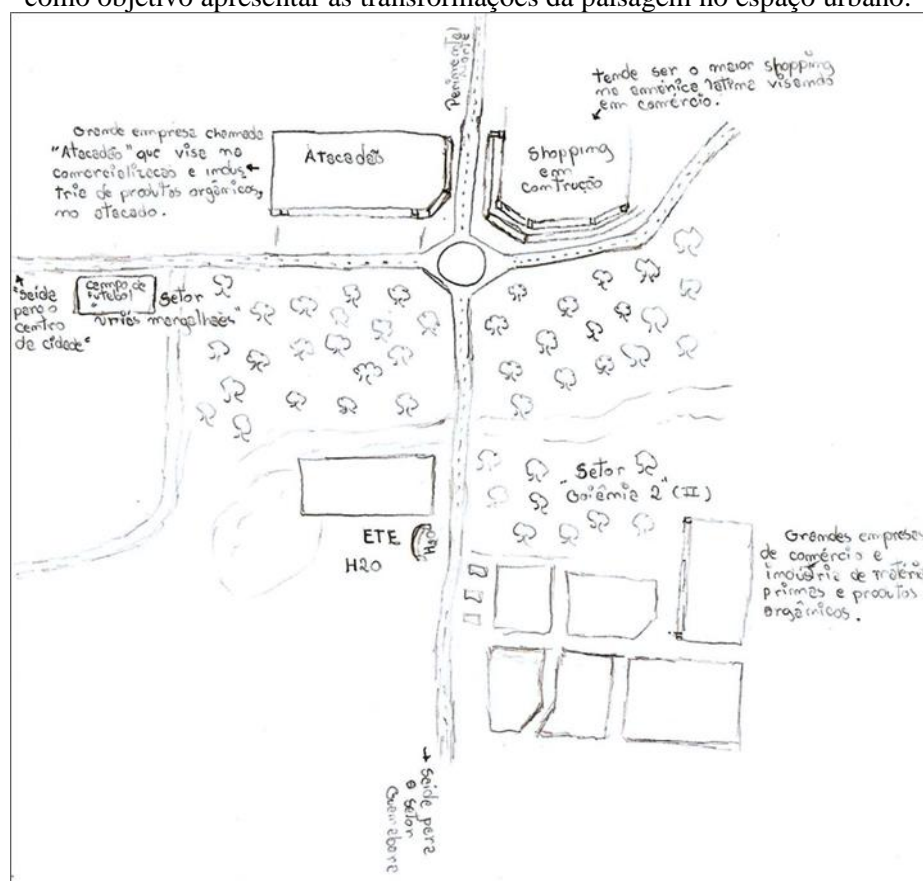 como objetivo apresentar as transformações da paisagem no espaço urbano.
Perimetral
Norte
tende ser o maior shopping
na américa latina visando
em comércio.
Grande empresa chamada
"Atacadão" que visa na
comercializacao e indus
tria de produtos orgânicos,
no atacado.
Atacadão
Shopping
em
contrução
"Saida
para o
centro
da cidade"
campo de
futebol
Setor
"Urias magalhães"
Setor
"Goiânia 2" (II)
ETE
H2O
H2O
Grandes empresas
de comércio e
indústria de matéria
primas e produtos
orgânicos.
Saida para
o setor
Guanabara